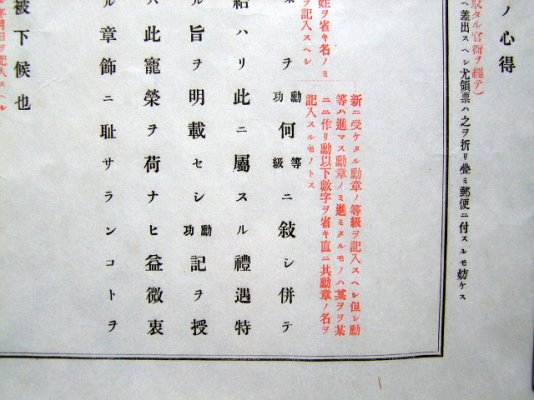 ノ心得
取タル官衙ヲ經テ)
ヘ差出スヘシ尤領票ハ之ヲ折リ疊ミ郵便ニ付スルモ妨ケス
新ニ受ケタル勳章ノ等級ヲ記入スヘシ但シ勳
等ハ進マス勳章ノミ進ミタルモノハ某ヲヲ某
ニニ作リ勳以下數字ヲ省キ直ニ其勳章ノ名ヲ
記入スルモノトス
姓ヲ省キ名ノミ
ヲ記入スヘシ
ヲ勳功何等級ニ敍シ併テ
給ハリ此ニ屬スル禮遇特
ル旨ヲ明載セシ勳功記ヲ授
ハ此寵榮ヲ荷ナヒ益微衷
ル章飾ニ耻サランコトヲ
被下候也
年月日ヲ記入スヘシ